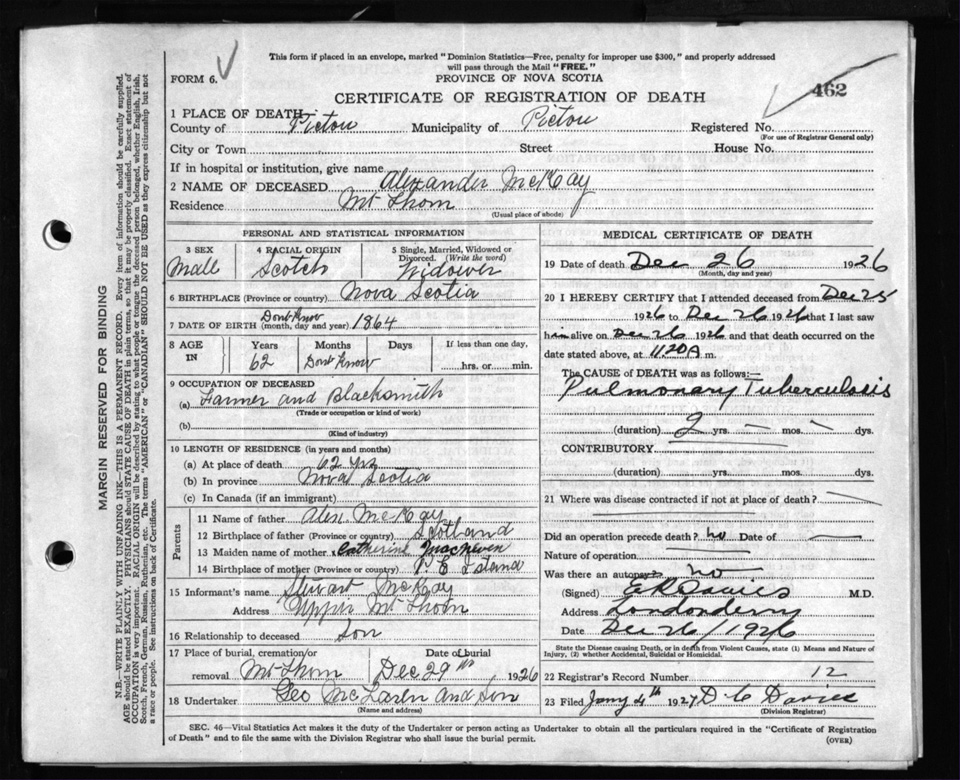 This form if placed in an envelope, marked "Dominion Statistics—Free, penalty for improper use $300," and properly addressed
will pass through the Mail "FREE."
FORM 6.
PROVINCE OF NOVA SCOTIA
462
CERTIFICATE OF REGISTRATION OF DEATH
1 PLACE OF DEATH
County of Pictou Municipality of Pictou Registered No.
(For use of Registrar General only)
City or Town Street House No.
If in hospital or institution, give name
2 NAME OF DECEASED Alexander McKay
Residence Mt Thom
(Usual place of abode)
PERSONAL AND STATISTICAL INFORMATION
3 SEX 4 RACIAL ORIGIN 5 Single, Married, Widowed or
Divorced. (Write the word)
Male Scotch Widower
6 BIRTHPLACE (Province or country) Nova Scotia
7 DATE OF BIRTH (month, day and year) Dont Know 1864
8 AGE IN Years Months Days If less than one day,
62 Dont Know hrs. or min.
9 OCCUPATION OF DECEASED
(a) Farmer and Blacksmith
(Trade or occupation or kind of work)
(b)
(Kind of industry)
10 LENGTH OF RESIDENCE (in years and months)
(a) At place of death 62 yrs
(b) In province Nova Scotia
(c) In Canada (if an immigrant)
Parents
11 Name of father Alex. McKay
12 Birthplace of father (Province or country) Scotland
13 Maiden name of mother Catherine
14 Birthplace of mother (Province or country) P E Island
15 Informant's name Stewart McKay
Address Upper Mt Thom
16 Relationship to deceased Son
17 Place of burial, cremation/or Date of burial
removal Mt Thom Dec 29th 1926
18 Undertaker Geo McLaren and Son
(Name and address)
MEDICAL CERTIFICATE OF DEATH
19 Date of death Dec 26 1926
(Month, day and year)
20 I HEREBY CERTIFY that I attended deceased from Dec 25
1926 to Dec 26 1926 that I last saw
him alive on Dec 26 1926 and that death occurred on the
date stated above, at 11.20 A. m.
The CAUSE of DEATH was as follows:—
Pulmonary Tuberculosis
(duration) 2 yrs. — mos. — dys.
CONTRIBUTORY
(duration) yrs. mos. dys.
21 Where was disease contracted if not at place of death? —
Did an operation precede death? no Date of —
Nature of operation
Was there an autopsy? no
(Signed) E R Davies M.D.
Address Londonderry
Date Dec 26/1926
State the Disease causing Death, or in death from Violent Causes, state (1) Means and Nature of
Injury, (2) whether Accidental, Suicidal or Homicidal.
22 Registrar's Record Number 12
23 Filed Jany 4th 1927 D C
(Division Registrar)
SEC. 46—Vital Statistics Act makes it the duty of the Undertaker or person acting as Undertaker to obtain all the particulars required in the "Certificate of Registration
of Death" and to file the same with the Division Registrar who shall issue the burial permit.
(OVER)
MARGIN RESERVED FOR BINDING
N.B.—WRITE PLAINLY WITH UNFADING INK—THIS IS A PERMANENT RECORD. Every item of information should be carefully supplied.
AGE should be stated EXACTLY. PHYSICIANS should STATE CAUSE OF DEATH in plain terms, so that it may be properly classified. Exact statement of
OCCUPATION is very important. RACIAL ORIGIN will be described by stating to what people or tongue the deceased person belonged, whether English, Irish,
Scotch, French, German, Russian, Ruthenian, etc. The terms "AMERICAN" or "CANADIAN" SHOULD NOT BE USED as they express citizenship but not
a race or people. See instructions on back of Certificate.